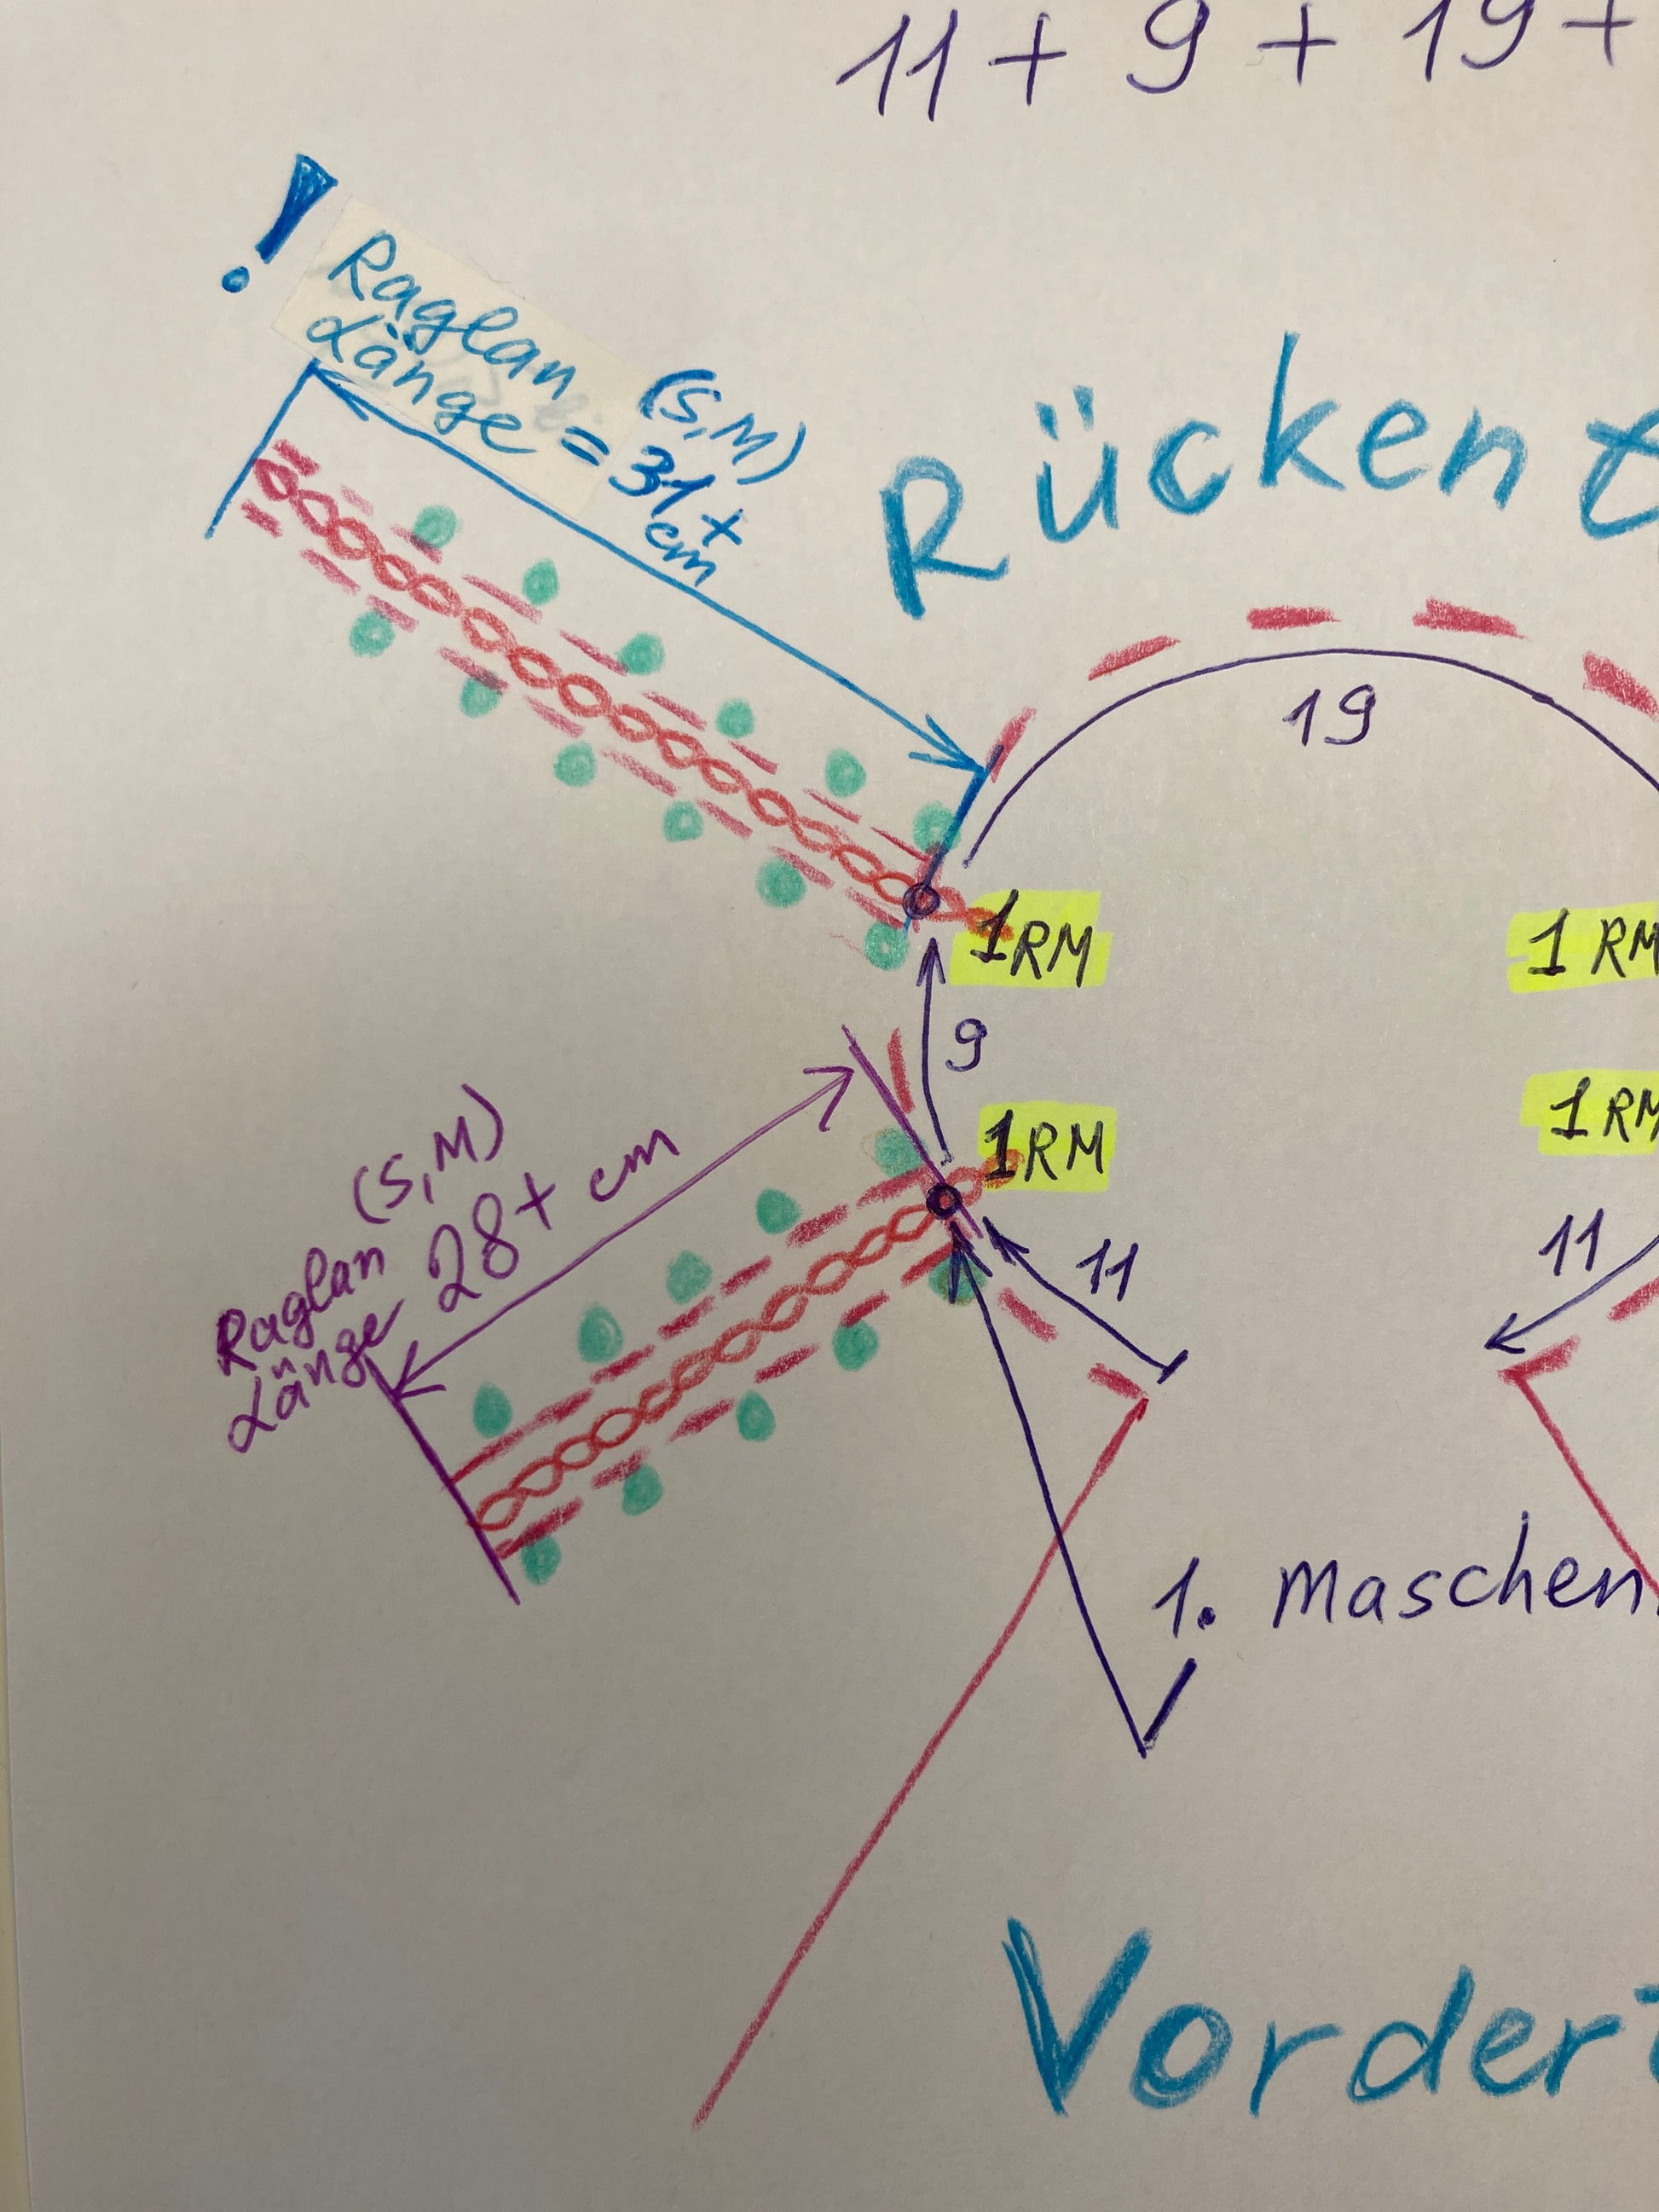 11 + 9 + 19 +
!
Raglan
Länge = 31+
(S,M)
cm
Rücken
19
1RM
1 RM
9
1RM
1 RM
(S,M)
Raglan
Länge 28+ cm
11
11
1. Maschen
Vorder